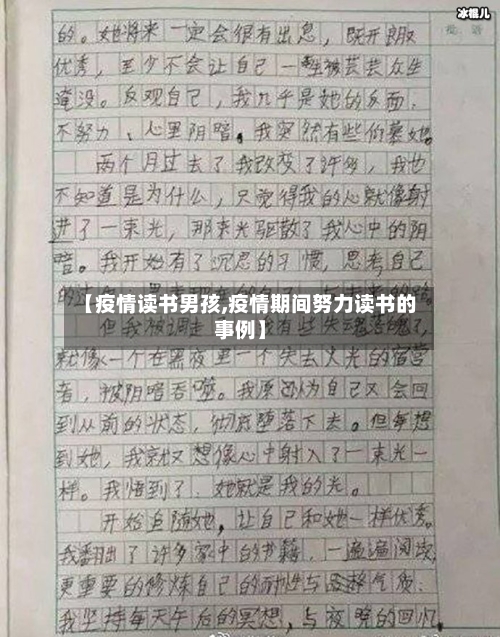 冰棍儿
批语
的。她将来一定会很有出息，既开朗又
优秀，至少不会让自己一生被芸芸众生
淹没。反观自己，我几乎是她的反面，
不努力、心里阴暗。我突然有些仰慕她。
两个月过去了，我改变了许多，我也
不知道是为什么，只觉得我的心就像射
进了一束光，那束光驱散了我心中的阴
暗。我开始有了沉思的习惯，思考自己
【疫情读书男孩,疫情期间努力读书的
事例】
就像一个在黑夜里一个失去火光的宿营
者，被阴暗吞噬。我原以为自己又会回
到从前的状态，彻底堕落下去。但每想
到她，我就又想像心中射入了一束光一
样。我悟到了：她就是我的光。
开始追随她，让自己和她一样优秀。
我翻出了许多家中的书籍，一遍遍阅读，
更重要的修炼自己的耐性与品格气质：
我坚持每天午后的冥想，与夜晚的回忆，